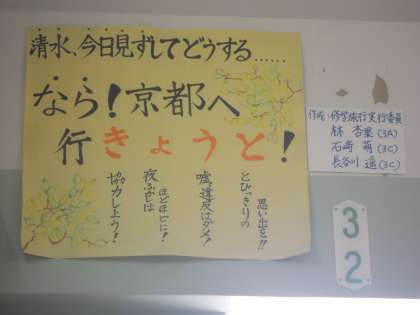 清水、今日見ずしてどうする……
なら!京都へ
行きょうと!
とびっきりの
思い出を!!
嘘、違反はダメ!
夜ふかしは
ほどほどに!
協力しよう!
作成 修学旅行実行委員
林 杏果(3A)
石崎 萌(3C)
長谷川 遥(3C)
32